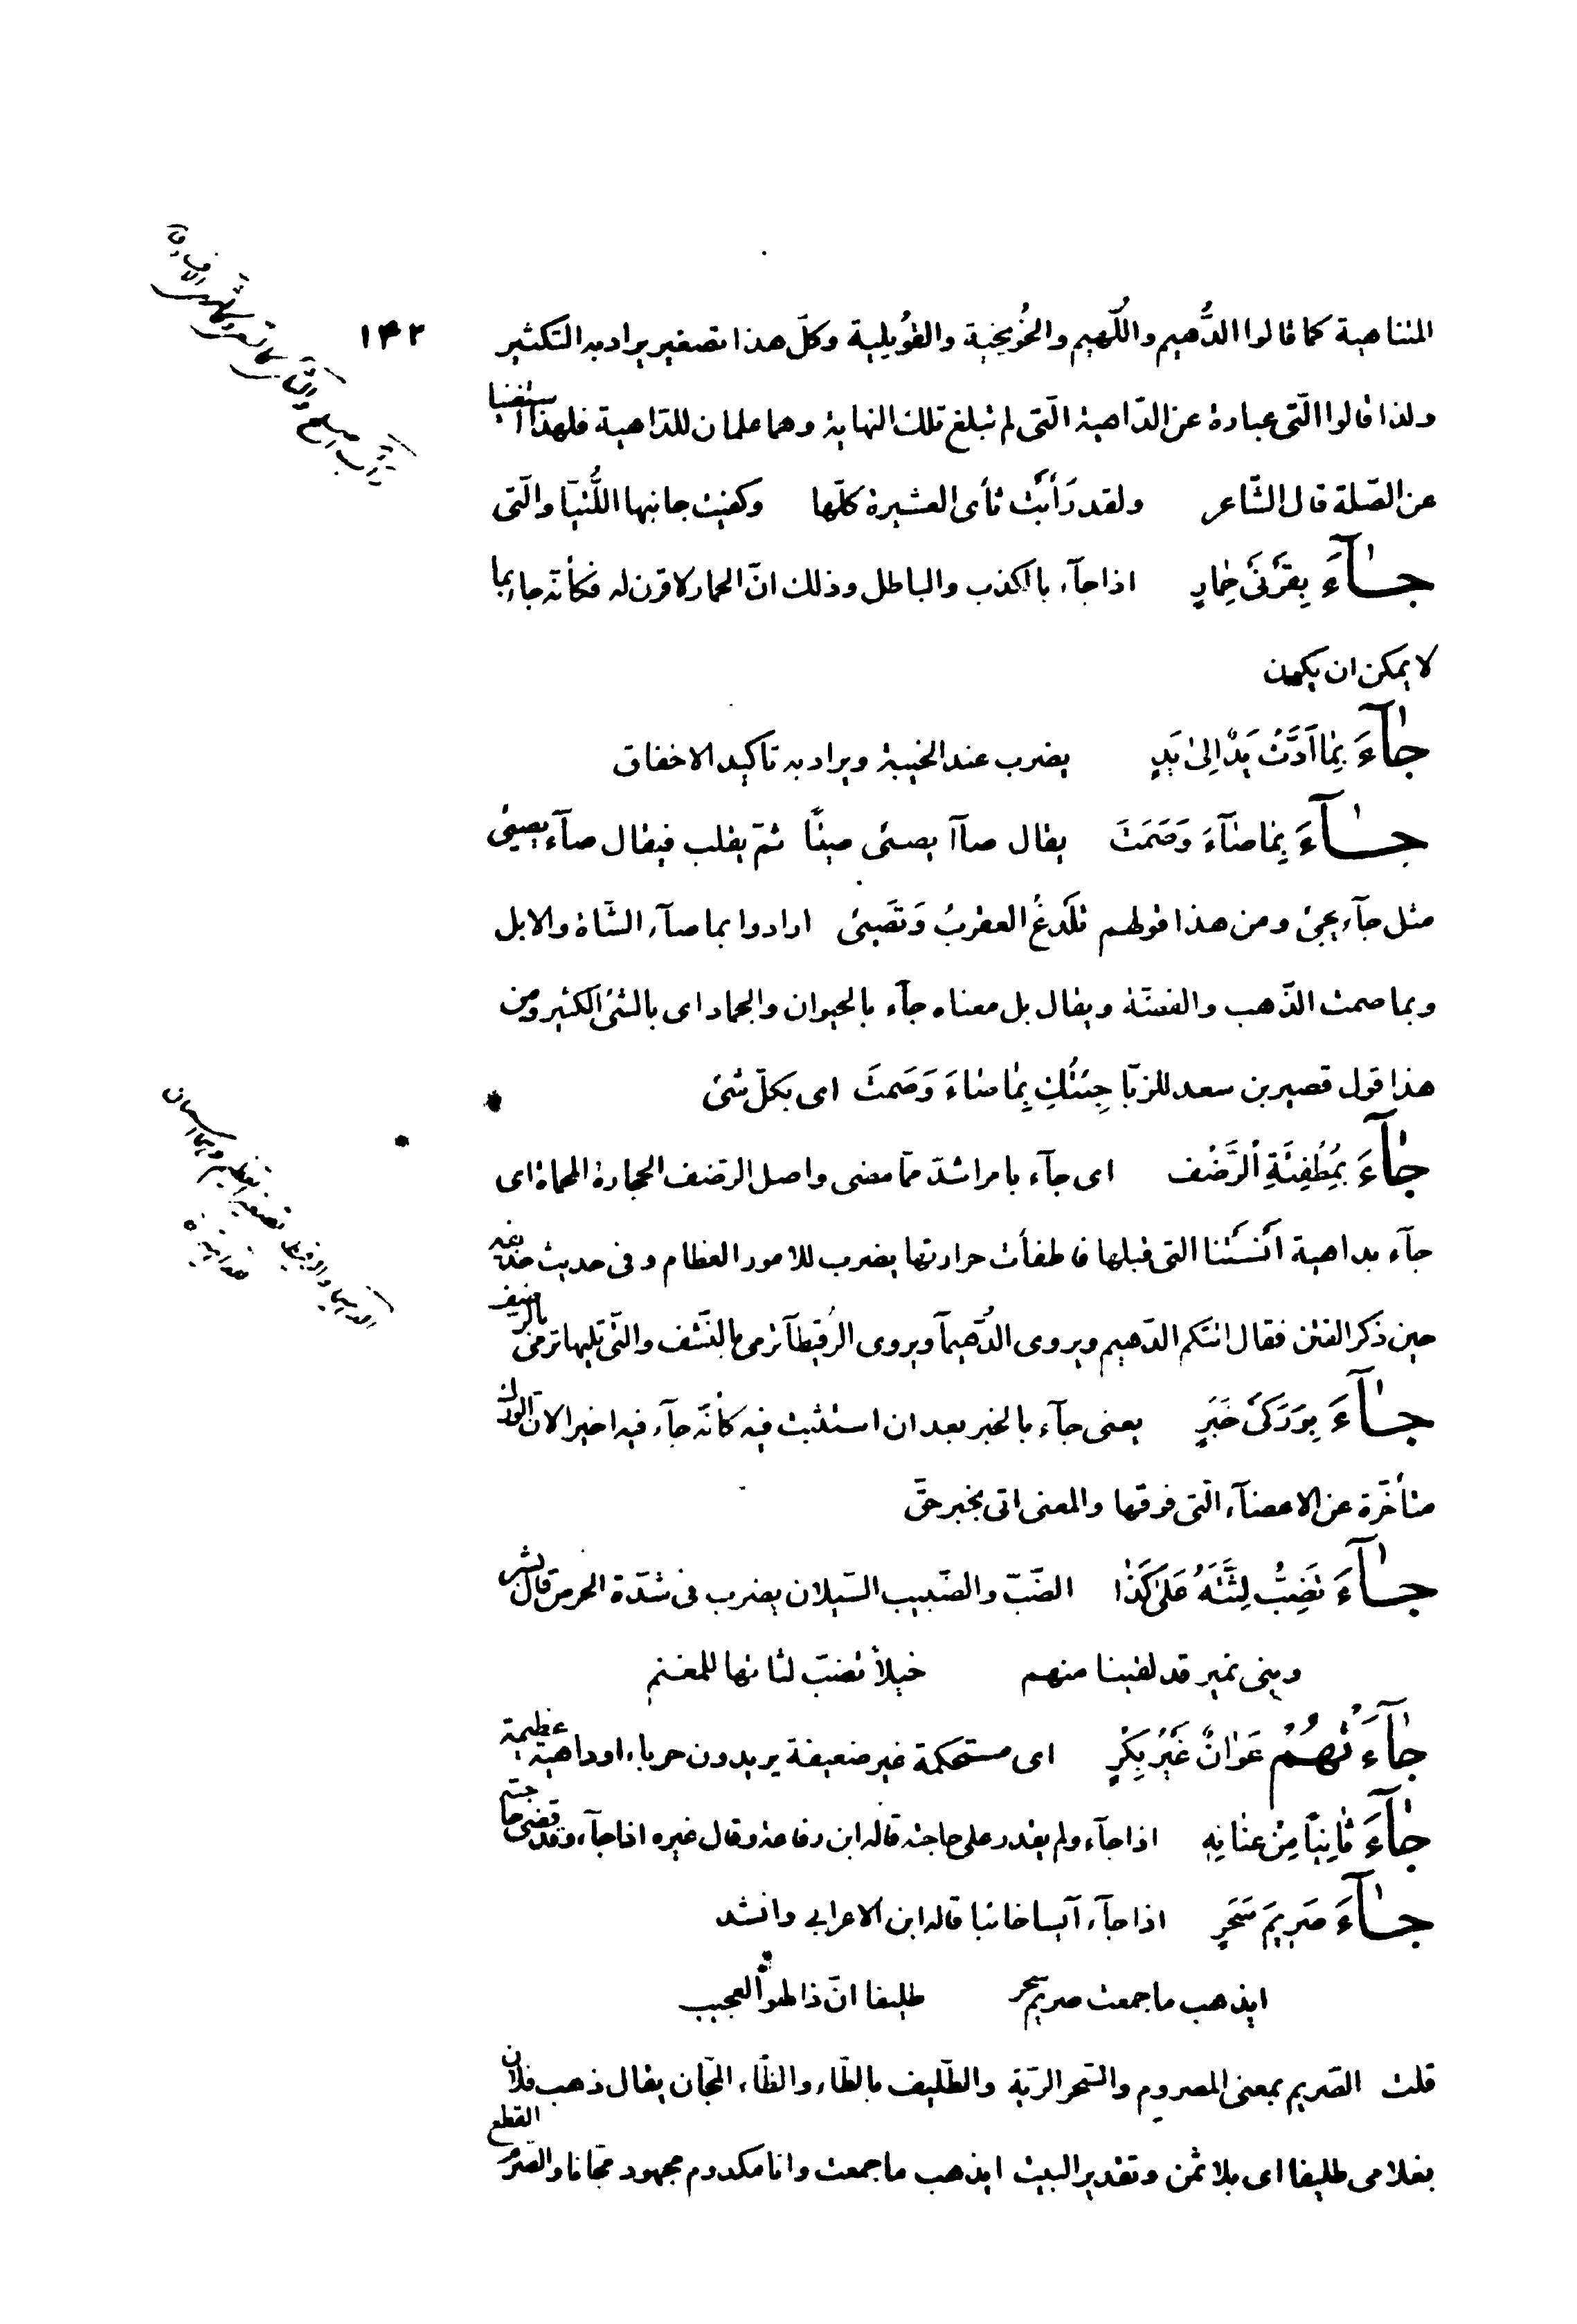 ١٤٢
المتناهية كما قالوا الدُّهيم واللُّهيم والخُويخية والقُويلية وكلّ هذا تصغير يراد به التكثير
ولذا قالوا الّتى عبارة عن الدّاهية الّتى لم تبلغ تلك النهاية وهما علمان للدّاهية فلهذا استغنيا
عن الصّلة قال الشّاعر ولقد رَأَبْتُ ثأى العشيرة كلّها وكفيت جانبها اللُّتيّا والّتى
جٰآءَ بِقَرْنَىْ حِمٰارٍ اذا جآء بالكذب والباطل وذلك انّ الحمار لا قرن له فكأنّه جاء بما
لا يمكن ان يكون
جٰآءَ بِمٰا اَدَّتْ يَدٌ اِلىٰ يَدٍ يضرب عند الخيبة ويراد به تاكيد الاخفاق
جٰآءَ بِمٰا صٰآءَ وَصَمَتَ يقال صاآ يصئى صيئًا ثمّ يقلب فيقال صآء يصيئ
مثل جآء يجئ ومن هذا قولهم تَلْدَغُ العقربُ وَتَصَيئ ارادوا بما صآء الشّاة والابل
وبما صمت الذّهب والفضّة ويقال بل معناه جآء بالحيوان والجماد اى بالشئ الكثير ومن
هذا قول قصير بن سعد للزبّا جِئْتُكِ بِمٰا صٰاءَ وَصَمتَ اى بكلّ شئ
جٰآءَ بِمُطْفِئَةِ الرَّضْف اى جآء بامر اشدّ ممّا مضى واصل الرّضف الحجارة المحماة اى
جآء بداهية اَنْسَتْنا التى قبلها فاطفأت حرارتها يضرب للامور العظام وفى حديث حذيفه
حين ذكر الفتن فقال اتتكم الدّهيم ويروى الدُّهيمآ ويروى الرُقيطآ ترمى بالنّشف والتّى تليها ترمى بالرّضف
جٰآءَ بِوَرَكَىْ خَبَرٍ يعنى جآء بالخبر بعد ان استثبت فيه كأنّه جآء فيه اخيرا لانّ الورك
متأخّرة عن الاعضآء الّتى فوقها والمعنى اتى بخبر حقّ
جٰآءَ تَضِبُّ لِثَتُهُ عَلىٰ كَذٰا الضّبّ والضّبيب السّيلان يضرب فى شدّة الحرص قال بشر
وبنى نمير قد لقينا منهم خيلاً تضبّ لثاتها للمغنم
جٰآءَتْهُمْ عَوٰانٌ غَيْرُ بِكْرٍ اى مستحكمة غير ضعيفة يريدون حربا، او داهية عظيمة
جٰآءَ ثٰانِيًا مِنْ عِنٰانِهِ اذا جآء ولم يقدر على حاجته قاله ابن رفاعة وقال غيره اذا جآء وقد قضى حاجته
جٰآءَ صَرِيمَ سَحَرٍ اذا جآء آيسا خائبا قاله ابن الاعرابي وانشد
ايذهب ما جمعت صريم سحر طليفا انّ ذا لهو العجيب
قلت الصّريم بمعنى المصروم والسّحر الرّية والطّليف بالطّاء والظّاء المجّان يقال ذهب فلان
بغلامى طليفا اى بلا ثمن وتقدير البيت ايذهب ما جمعت وانا مكدوم مجهود مجّانا والصّرم القطع